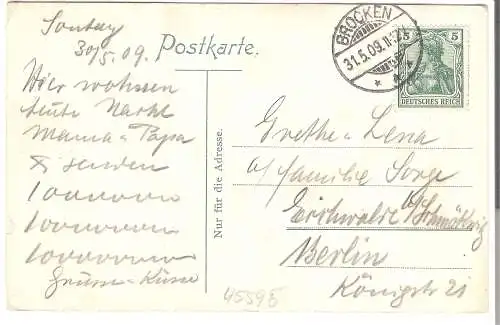 Sontag
30/5.09.
Postkarte.
BROCKEN
31.5.09.11-12
5 5
DEUTSCHES REICH
Hier wohnen
heute Nacht
Mama u Papa
& senden
1000000
1000000
10000000
Grüsse u Küsse
Nur für die Adresse.
Grethe u Lena
a/ Familie Sorge
Eichwalde b/Schmöckwitz
Berlin
Königstr 21
45595